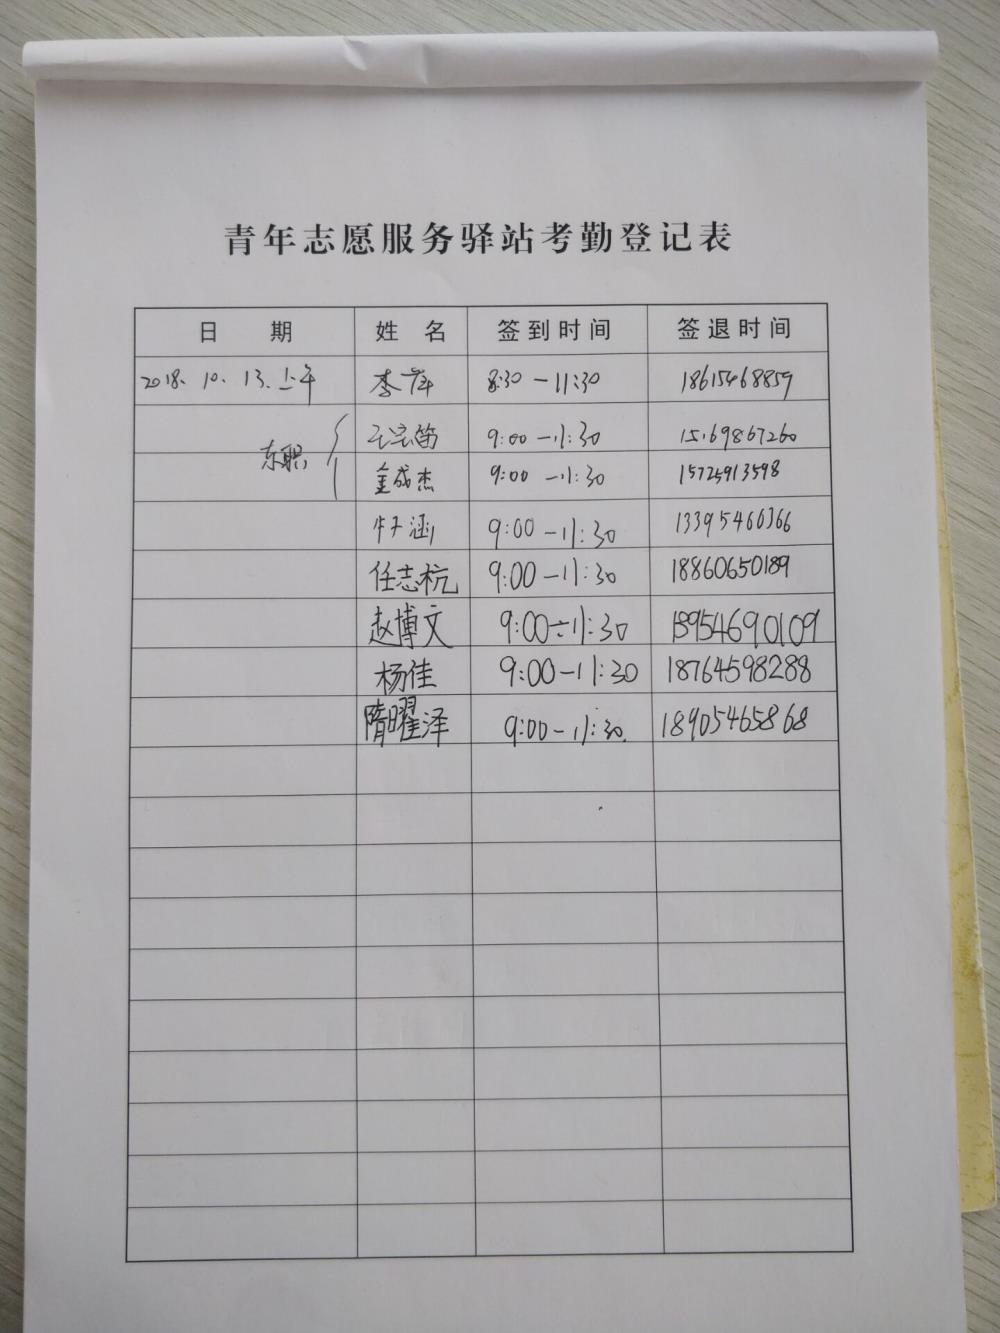 青年志愿服务驿站考勤登记表
日 期 姓 名 签到时间 签退时间
2018.10.13.上午 李 8:30-11:30 18615468859
东职 笛 9:00-11:30 15169867260
金成杰 9:00-11:30 15725913598
牛子涵 9:00-11:30 13395466366
任志杭 9:00-11:30 18860650189
赵博文 9:00-11:30 18954690109
杨佳 9:00-11:30 18764598288
隋曜泽 9:00-11:30. 18905465868